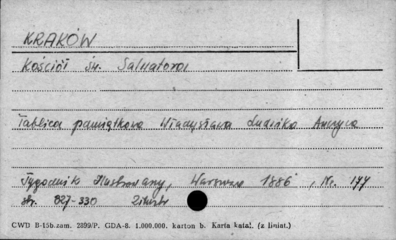 KRAKÓW
Kościół św. Salwatora
Tablica pamiątkowa Władysława Ludwika Anczyca
Tygodnik Illustrowany, Warszawa 1886, Nr. 177
str. 327-330
CWD II-15b.zam. 2899/P. GDA-8. 1.000.000. karton b. Karta katal. (z liniat.)